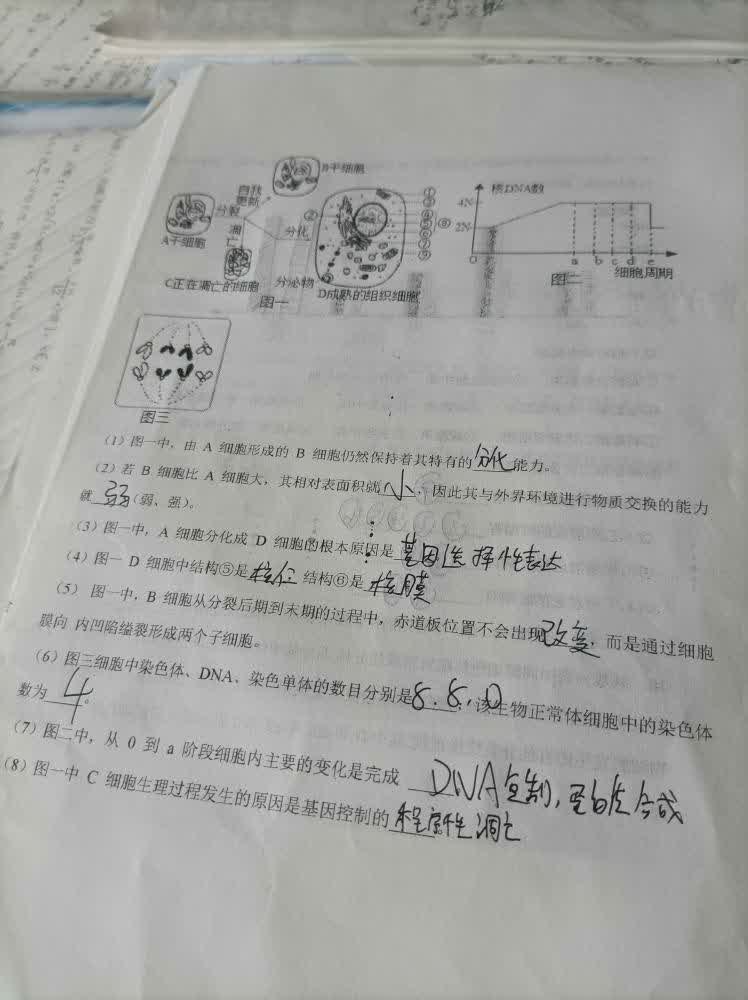 B干细胞
自我
更新
核DNA数
4N
2N
分裂
分化
凋亡
A干细胞
②
①
③
④
⑤
⑥
⑦
⑧
⑨
0 a b c d e
细胞周期
图二
C正在凋亡的细胞
分泌物
D成熟的组织细胞
图一
图三
(1)图一中，由 A 细胞形成的 B 细胞仍然保持着其特有的分化能力。
(2)若 B 细胞比 A 细胞大，其相对表面积就小，因此其与外界环境进行物质交换的能力
就弱(弱、强)。
(3)图一中，A 细胞分化成 D 细胞的根本原因是基因选择性表达
(4)图一 D 细胞中结构⑤是核仁 结构⑥是核膜
(5) 图一中，B 细胞从分裂后期到末期的过程中，赤道板位置不会出现改变，而是通过细胞
膜向 内凹陷缢裂形成两个子细胞。
(6)图三细胞中染色体、DNA、染色单体的数目分别是8.8.0，该生物正常体细胞中的染色体
数为4。
(7)图二中，从 0 到 a 阶段细胞内主要的变化是完成 DNA复制，蛋白质合成
(8)图一中 C 细胞生理过程发生的原因是基因控制的程序性凋亡